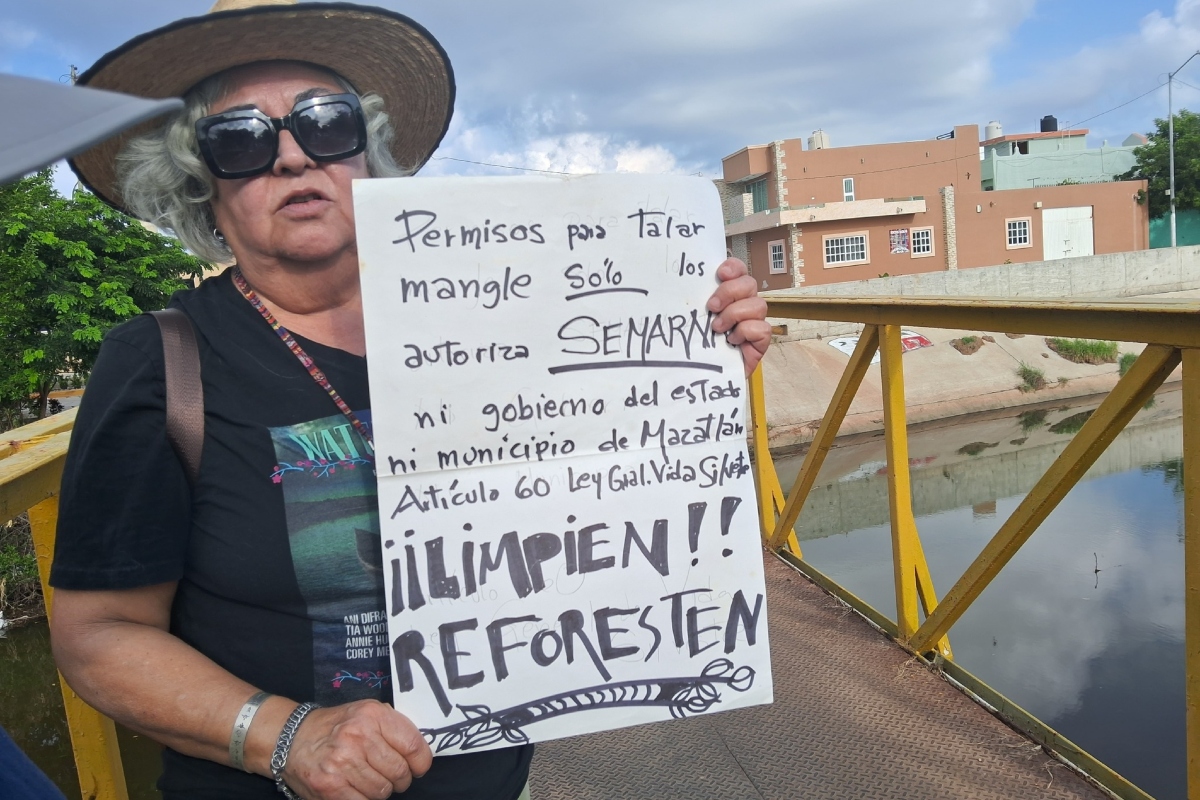 Permisos para Talar
mangle Sólo los
autoriza SEMARN
ni gobierno del estado
ni municipio de Mazatlán
Artículo 60 Ley Gral. Vida Silvestre
¡¡LIMPIEN!!
REFORESTEN
WAT
ANI DIFRA
TIA WOO
ANNIE HU
COREY ME